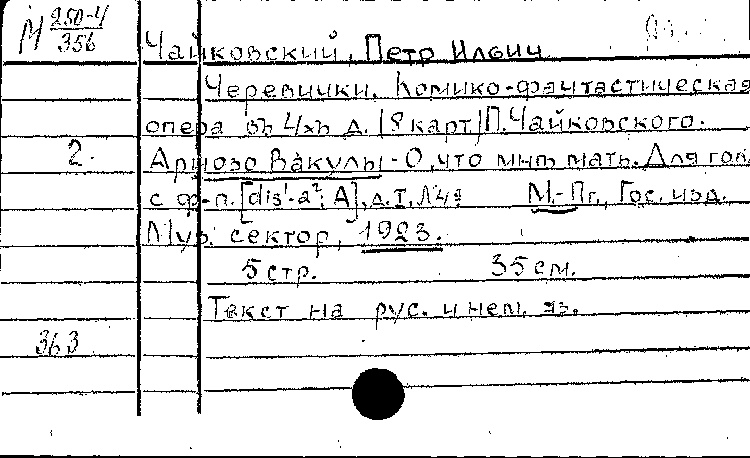 М 250-4/356
Чайковский, Петр Ильич
Черевички. Комико-фантастическая
опера въ 4хъ д. (8 карт) П. Чайковского.
2. Ариозо Вакулы - О, что мнѣ мать. Для гол.
с ф-п. [dis¹-a²; A], д. I, №4а М.-Пг., Гос. изд.
Муз. сектор, 1923.
5 стр. 35 см.
Текст на рус. и нем. яз.
363